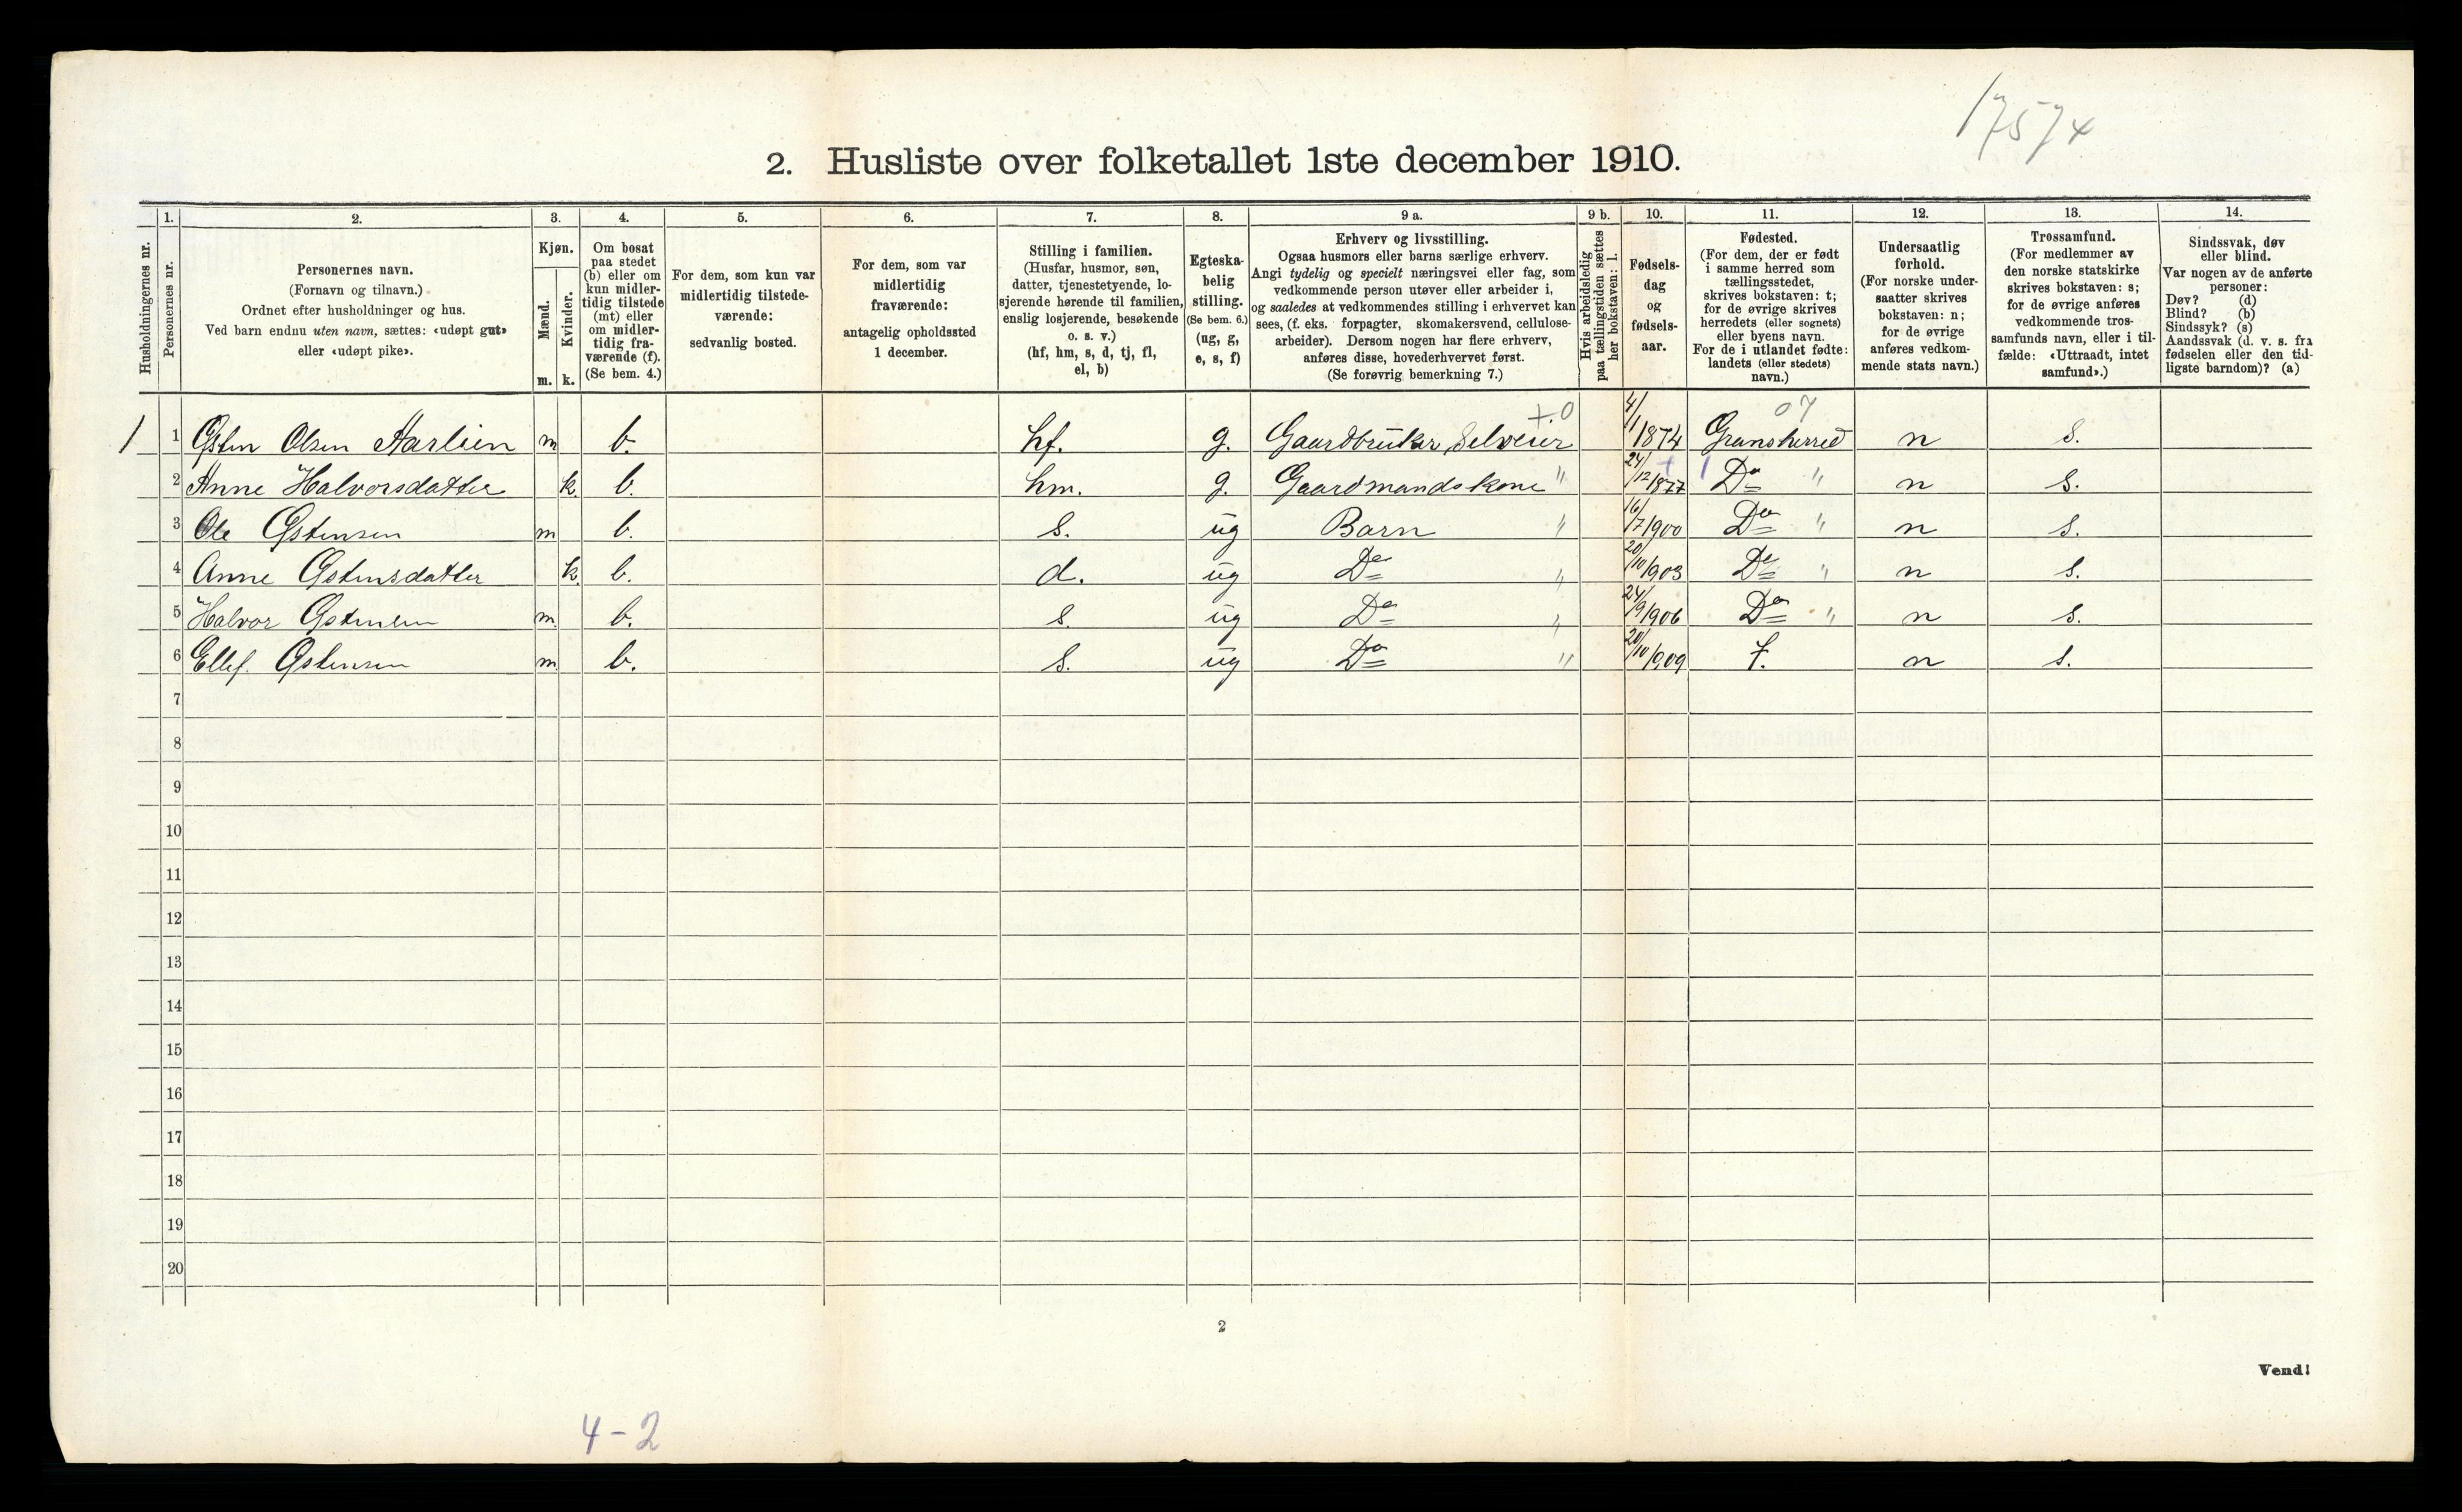 17574
2. Husliste over folketallet 1ste december 1910.
Husholdningernes nr.
1.
Personernes nr.
2.
Personernes navn.
(Fornavn og tilnavn.)
Ordnet efter husholdninger og hus.
Ved barn endnu uten navn, sættes: «udøpt gut»
eller «udøpt pike».
3.
Kjøn.
Mænd.
Kvinder.
m. k.
4.
Om bosat
paa stedet
(b) eller om
kun midler-
tidig tilstede
(mt) eller
om midler-
tidig fra-
værende (f).
(Se bem. 4.)
5.
For dem, som kun var
midlertidig tilstede-
værende:
sedvanlig bosted.
6.
For dem, som var
midlertidig
fraværende:
antagelig opholdssted
1 december.
7.
Stilling i familien.
(Husfar, husmor, søn,
datter, tjenestetyende, lo-
sjerende hørende til familien,
enslig losjerende, besøkende
o. s. v.)
(hf, hm, s, d, tj, fl,
el, b)
8.
Egteska-
belig
stilling.
(Se bem. 6.)
(ug, g,
e, s, f)
9 a.
Erhverv og livsstilling.
Ogsaa husmors eller barns særlige erhverv.
Angi tydelig og specielt næringsvei eller fag, som
vedkommende person utøver eller arbeider i,
og saaledes at vedkommendes stilling i erhvervet kan
sees, (f. eks. forpagter, skomakersvend, cellulose-
arbeider). Dersom nogen har flere erhverv,
anføres disse, hovederhvervet først.
(Se forøvrig bemerkning 7.)
9 b.
Hvis arbeidsledig
paa tællingstiden sættes
her bokstaven: l.
10.
Fødsels-
dag
og
fødsels-
aar.
11.
Fødested.
(For dem, der er født
i samme herred som
tællingsstedet,
skrives bokstaven: t;
for de øvrige skrives
herredets (eller sognets)
eller byens navn.
For de i utlandet fødte:
landets (eller stedets)
navn.)
12.
Undersaatlig
forhold.
(For norske under-
saatter skrives
bokstaven: n;
for de øvrige
anføres vedkom-
mende stats navn.)
13.
Trossamfund.
(For medlemmer av
den norske statskirke
skrives bokstaven: s;
for de øvrige anføres
vedkommende tros-
samfunds navn, eller i til-
fælde: «Uttraadt, intet
samfund».)
14.
Sindssvak, døv
eller blind.
Var nogen av de anførte
personer:
Døv? (d)
Blind? (b)
Sindssyk? (s)
Aandssvak (d. v. s. fra
fødselen eller den tid-
ligste barndom)? (a)
+.0 07
1 1 Østen Olsen Aarlien m b. hf. g. Gaardbruker Selveier 4/1 1874 Gransherred n s.
2 Anne Halvorsdatter k. b. hm. g. Gaardmandskone " 24/12 1877 Do " n s.
3 Ole Østensen m b. s. ug Barn " 16/7 1900 Do " n s.
4 Anne Østensdatter k. b. d. ug Do " 20/10 1903 Do " n s.
5 Halvor Østensen m. b. s. ug Do " 24/9 1906 Do " n s.
6 Ellef Østensen m. b. s. ug Do " 20/10 1909 t. n s.
7
8
9
10
11
12
13
14
15
16
17
18
19
20
2
Vend!
4-2